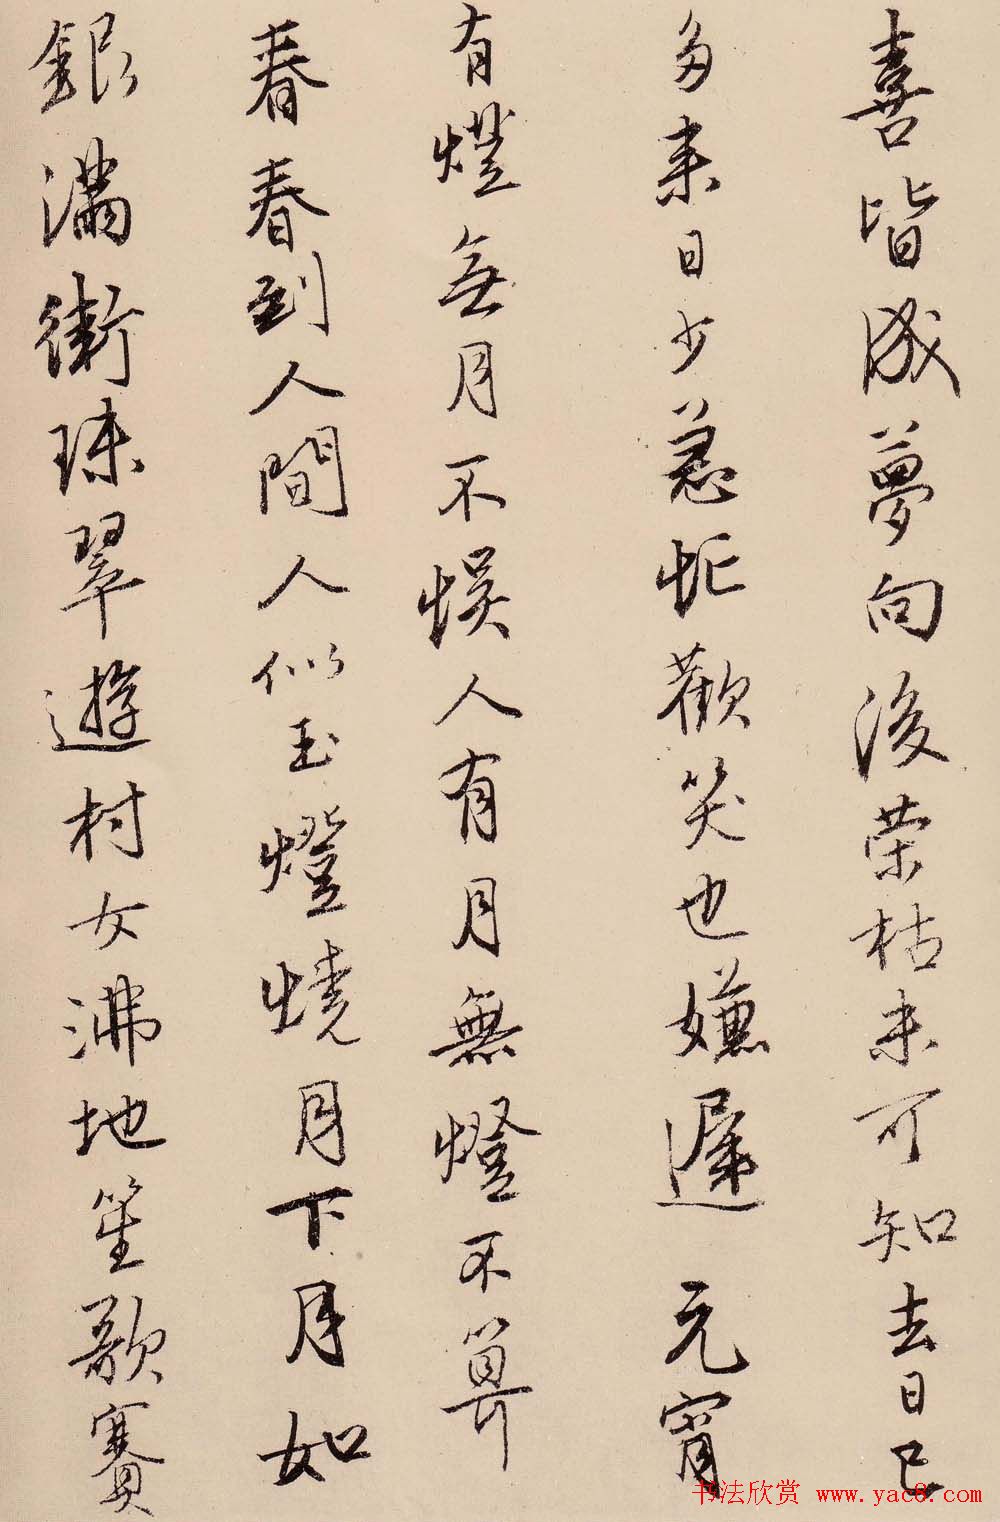 喜皆成夢向後荣枯未可知去日已
多来日少急忙歡笑也嫌遲 元宵
有燈無月不娱人有月無燈不算
春春到人間人似玉燈燒月下月如
銀滿街珠翠遊村女沸地笙歌賽
书法欣赏 www.yac8.com